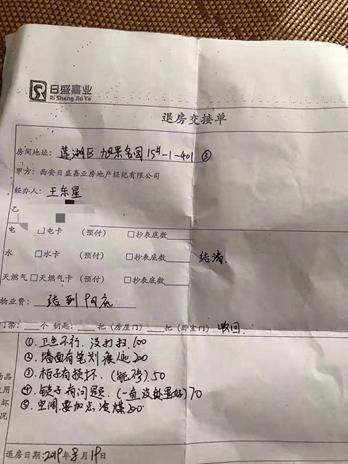 日盛嘉业
Ri Sheng Jia Ye
退房交接单
房间地址: 莲湖区 旭景名园 15#-1-401 ③
甲方: 西安日盛嘉业房地产经纪有限公司
经办人: 王东星
乙
电 □电卡 (预付) □抄表底数
水 □水卡 (预付) □抄表底数 结清
天燃气 □天燃气卡 (预付) □抄表底数
物业费: 结到 9月底
门禁: 个 钥匙: 把 (房屋门) 把 (卧室门)
①. 卫生不行. 没打扫. 100
②. 墙面有笔划 200
③. 柜子有损坏. 50
④. 锁子有问题. 70
⑤. 空调要加 冷煤 200
品
用
坏
况
退房日期: 2019年8月19日